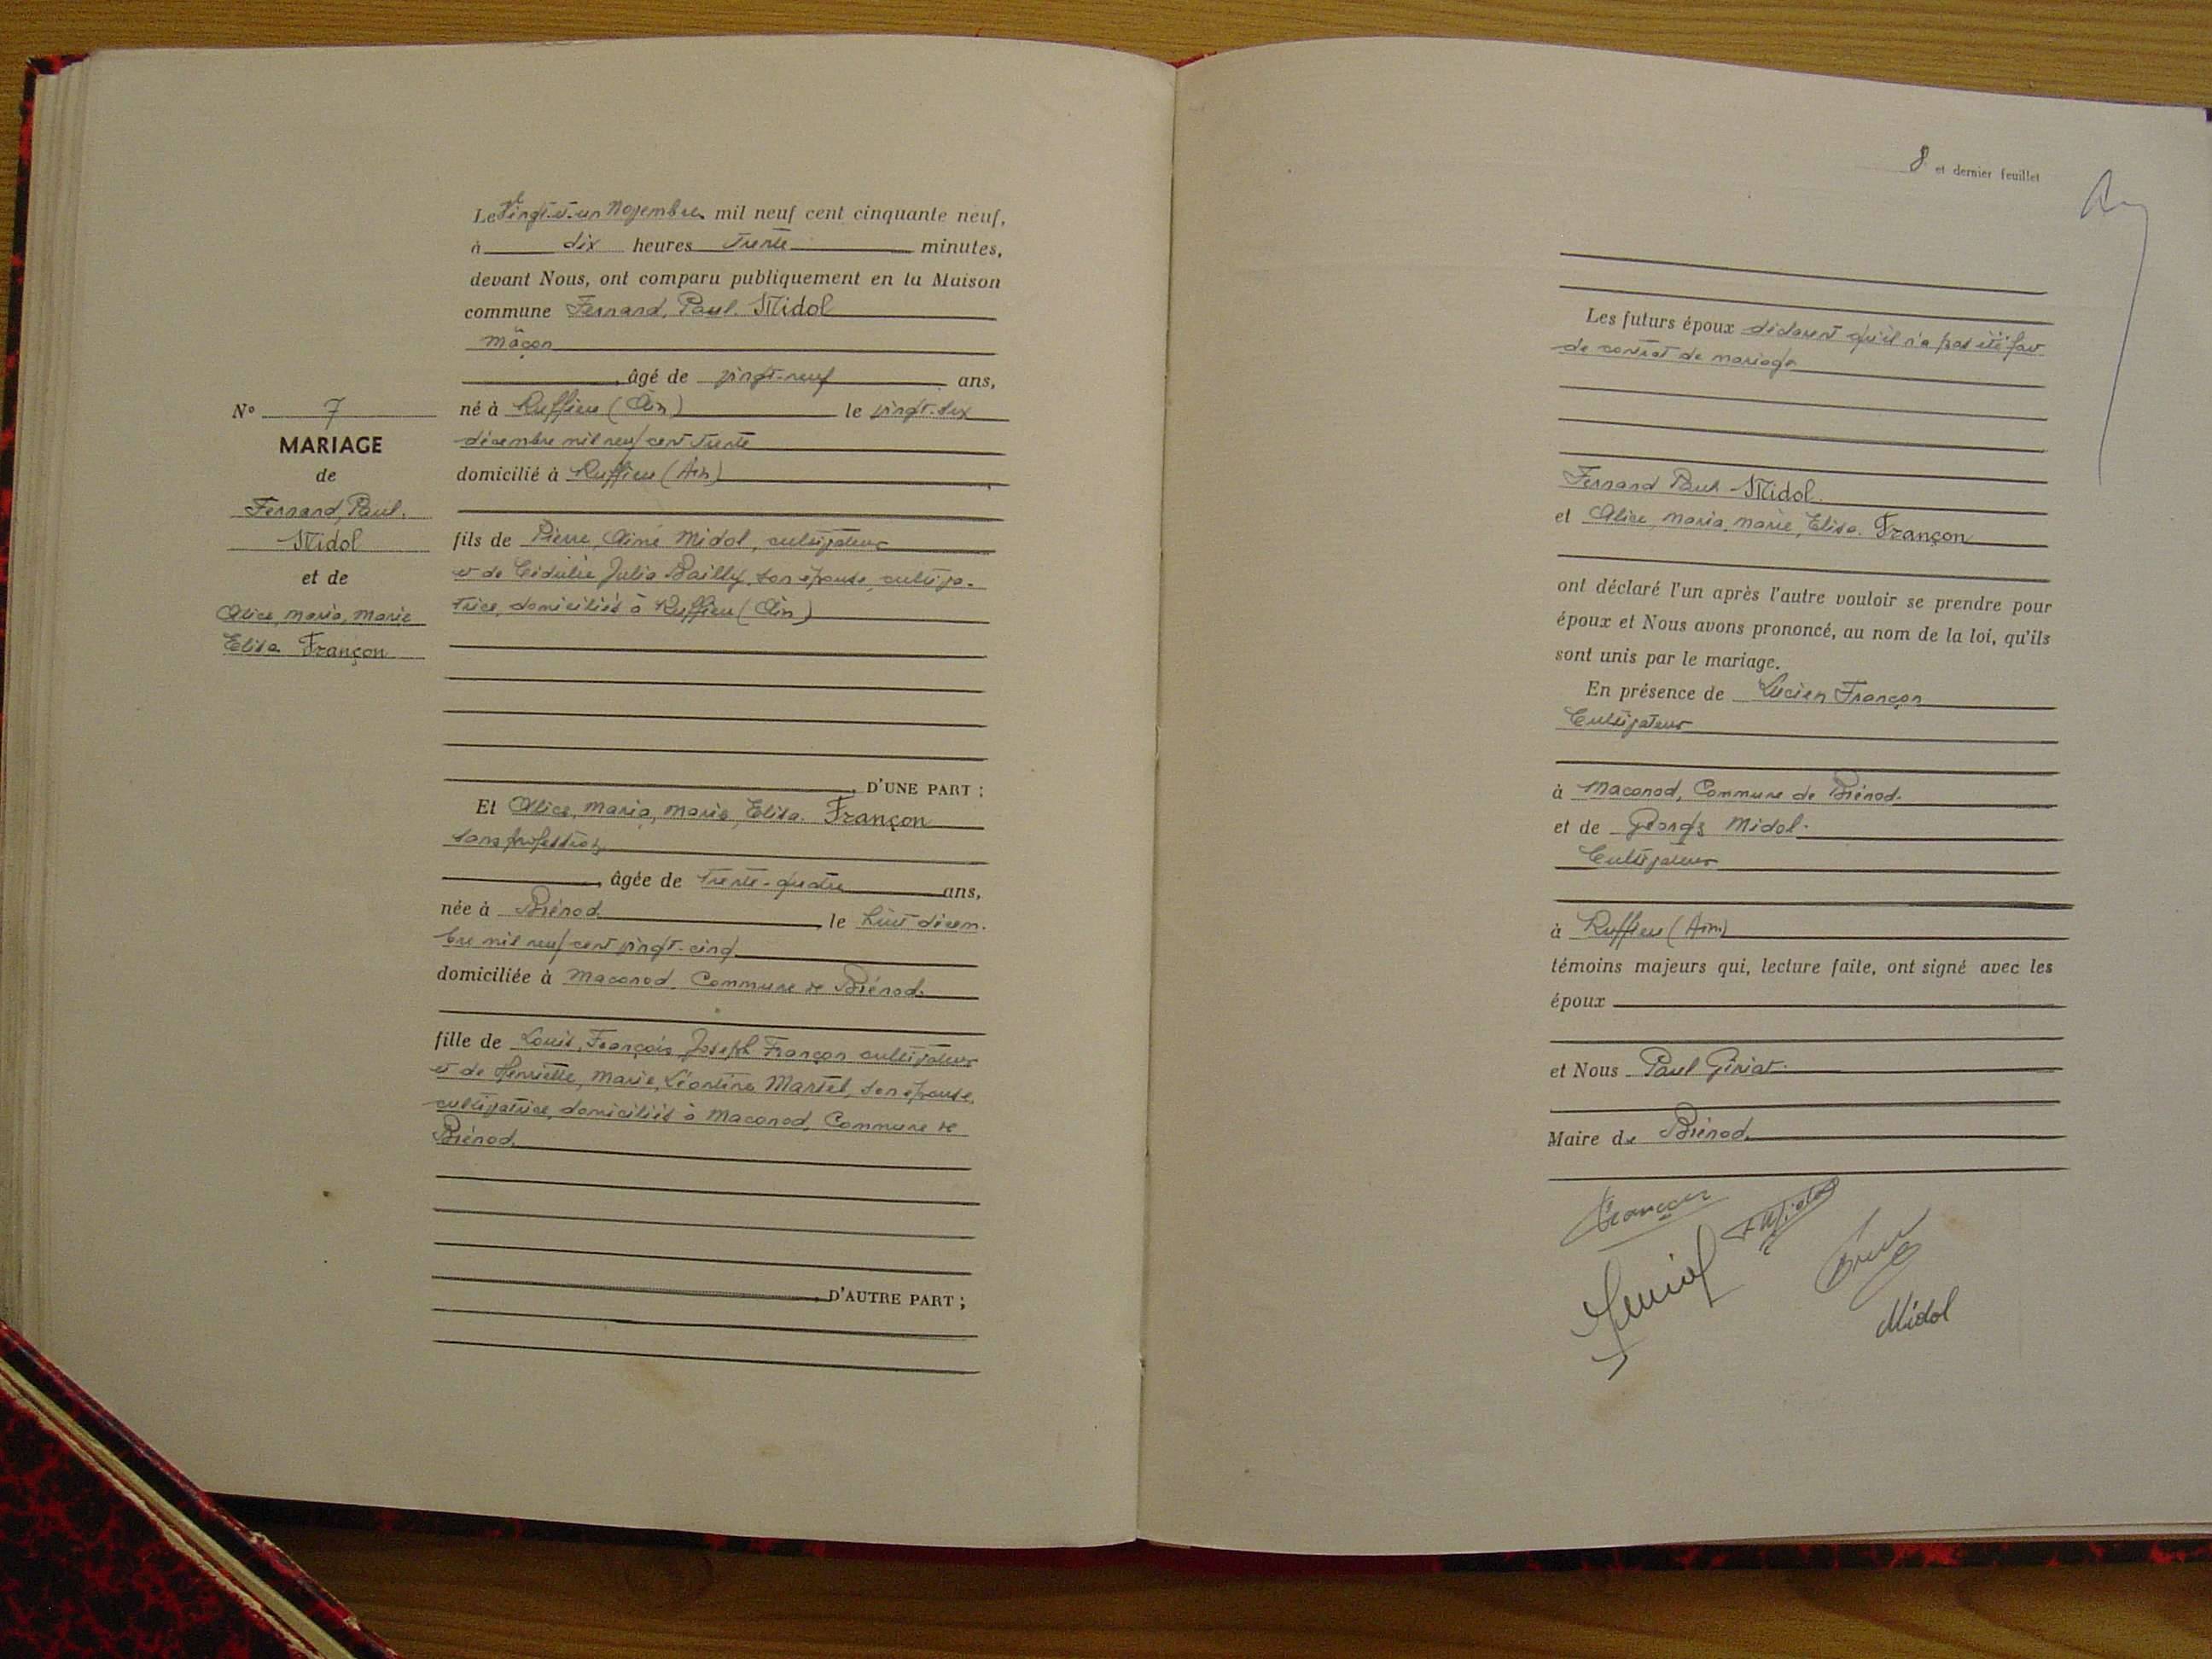 Le Vingt-et-un Novembre mil neuf cent cinquante neuf,
à dix heures trente minutes,
devant Nous, ont comparu publiquement en la Maison
commune Fernand, Paul. Midol
maçon
, âgé de vingt-neuf ans,
né à Ruffieu (Ain) le vingt-six
décembre mil neuf cent trente
domicilié à Ruffieu (Ain)
fils de Pierre, Aimé Midol, cultivateur
et de Julia Bailly, son épouse, cultiva-
trice, domiciliés à Ruffieu (Ain)
D'UNE PART ;
N° 7
MARIAGE
de
Fernand, Paul.
Midol
et de
Alice, maria, marie
Elisa Françon
Et Alice, maria, marie, Elisa. Françon
sans profession
, âgée de trente-quatre ans,
née à Brénod le huit décem-
bre mil neuf cent vingt-cinq
domiciliée à Maconod Commune de Brénod.
fille de Louis, François Joseph Françon cultivateur
et de Henriette, Marie, Léontine Martel, son épouse,
cultivatrice, domiciliés à Maconod, Commune de
Brénod
D'AUTRE PART ;
8 et dernier feuillet
Les futurs époux déclarent qu'il n'a pas été fait
de contrat de mariage
Fernand Paul Midol.
et Alice, maria, marie, Elisa. Françon
ont déclaré l'un après l'autre vouloir se prendre pour
époux et Nous avons prononcé, au nom de la loi, qu'ils
sont unis par le mariage.
En présence de Lucien Françon
Cultivateur
à Maconod, Commune de Brénod.
et de Georges Midol.
Cultivateur
à Ruffieu (Ain)
témoins majeurs qui, lecture faite, ont signé avec les
époux
et Nous Paul Giriat.
Maire de Brénod
Françon
Midol
Midol